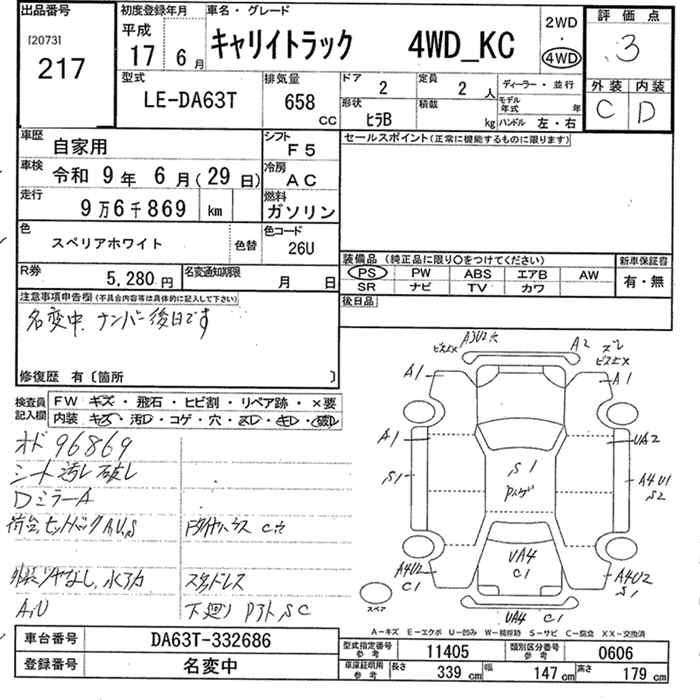 出品番号
[2073]
217
初度登録年月
平成
17 6 月
車名・グレード
キャリイトラック 4WD_KC
2WD
・
4WD
評価点
3
外装 内装
C D
型式
LE-DA63T
排気量
658 CC
ドア 2
定員 2 人
形状 ヒラB
積載 kg
ディーラー・並行
モデル年式 年
ハンドル 左・右
車歴 自家用
シフト F5
車検 令和 9 年 6 月 ( 29 日)
冷房 AC
走行 9 万 6 千 869 km
燃料 ガソリン
色 スペリアホワイト 色替
色コード 26U
R券 5,280 円
名変通知期限 月 日
セールスポイント(正常に機能するものに限ります)
装備品 (純正品に限り〇をつけてください)
PS PW ABS エアB AW
SR ナビ TV カワ
新車保証書
有・無
後日品
注意事項申告欄(不具合内容等は具体的に記入して下さい)
名変中 ナンバー後日です
修復歴 有〔箇所 〕
検査員記入欄
FW キズ・飛石・ヒビ割・リペア跡・×要
内装 キズ・汚・コゲ・穴・
オド 96869
シート汚レ破レ
DミラーA
下廻り
A,U
A1
A2
A1
A1
UA2
S1
S1
A4U1
S2
UA4
C1
A4U2
C1
A4U2
S1
UA4 C1
スペア
A-キズ E-エクボ U-凹み W-補修跡 S-サビ C-腐食 XX-交換済
車台番号 DA63T-332686
登録番号 名変中
型式指定番号 参考 11405
類別区分番号 参考 0606
車庫証明用 参考 長さ 339 cm 幅 147 cm 高さ 179 cm